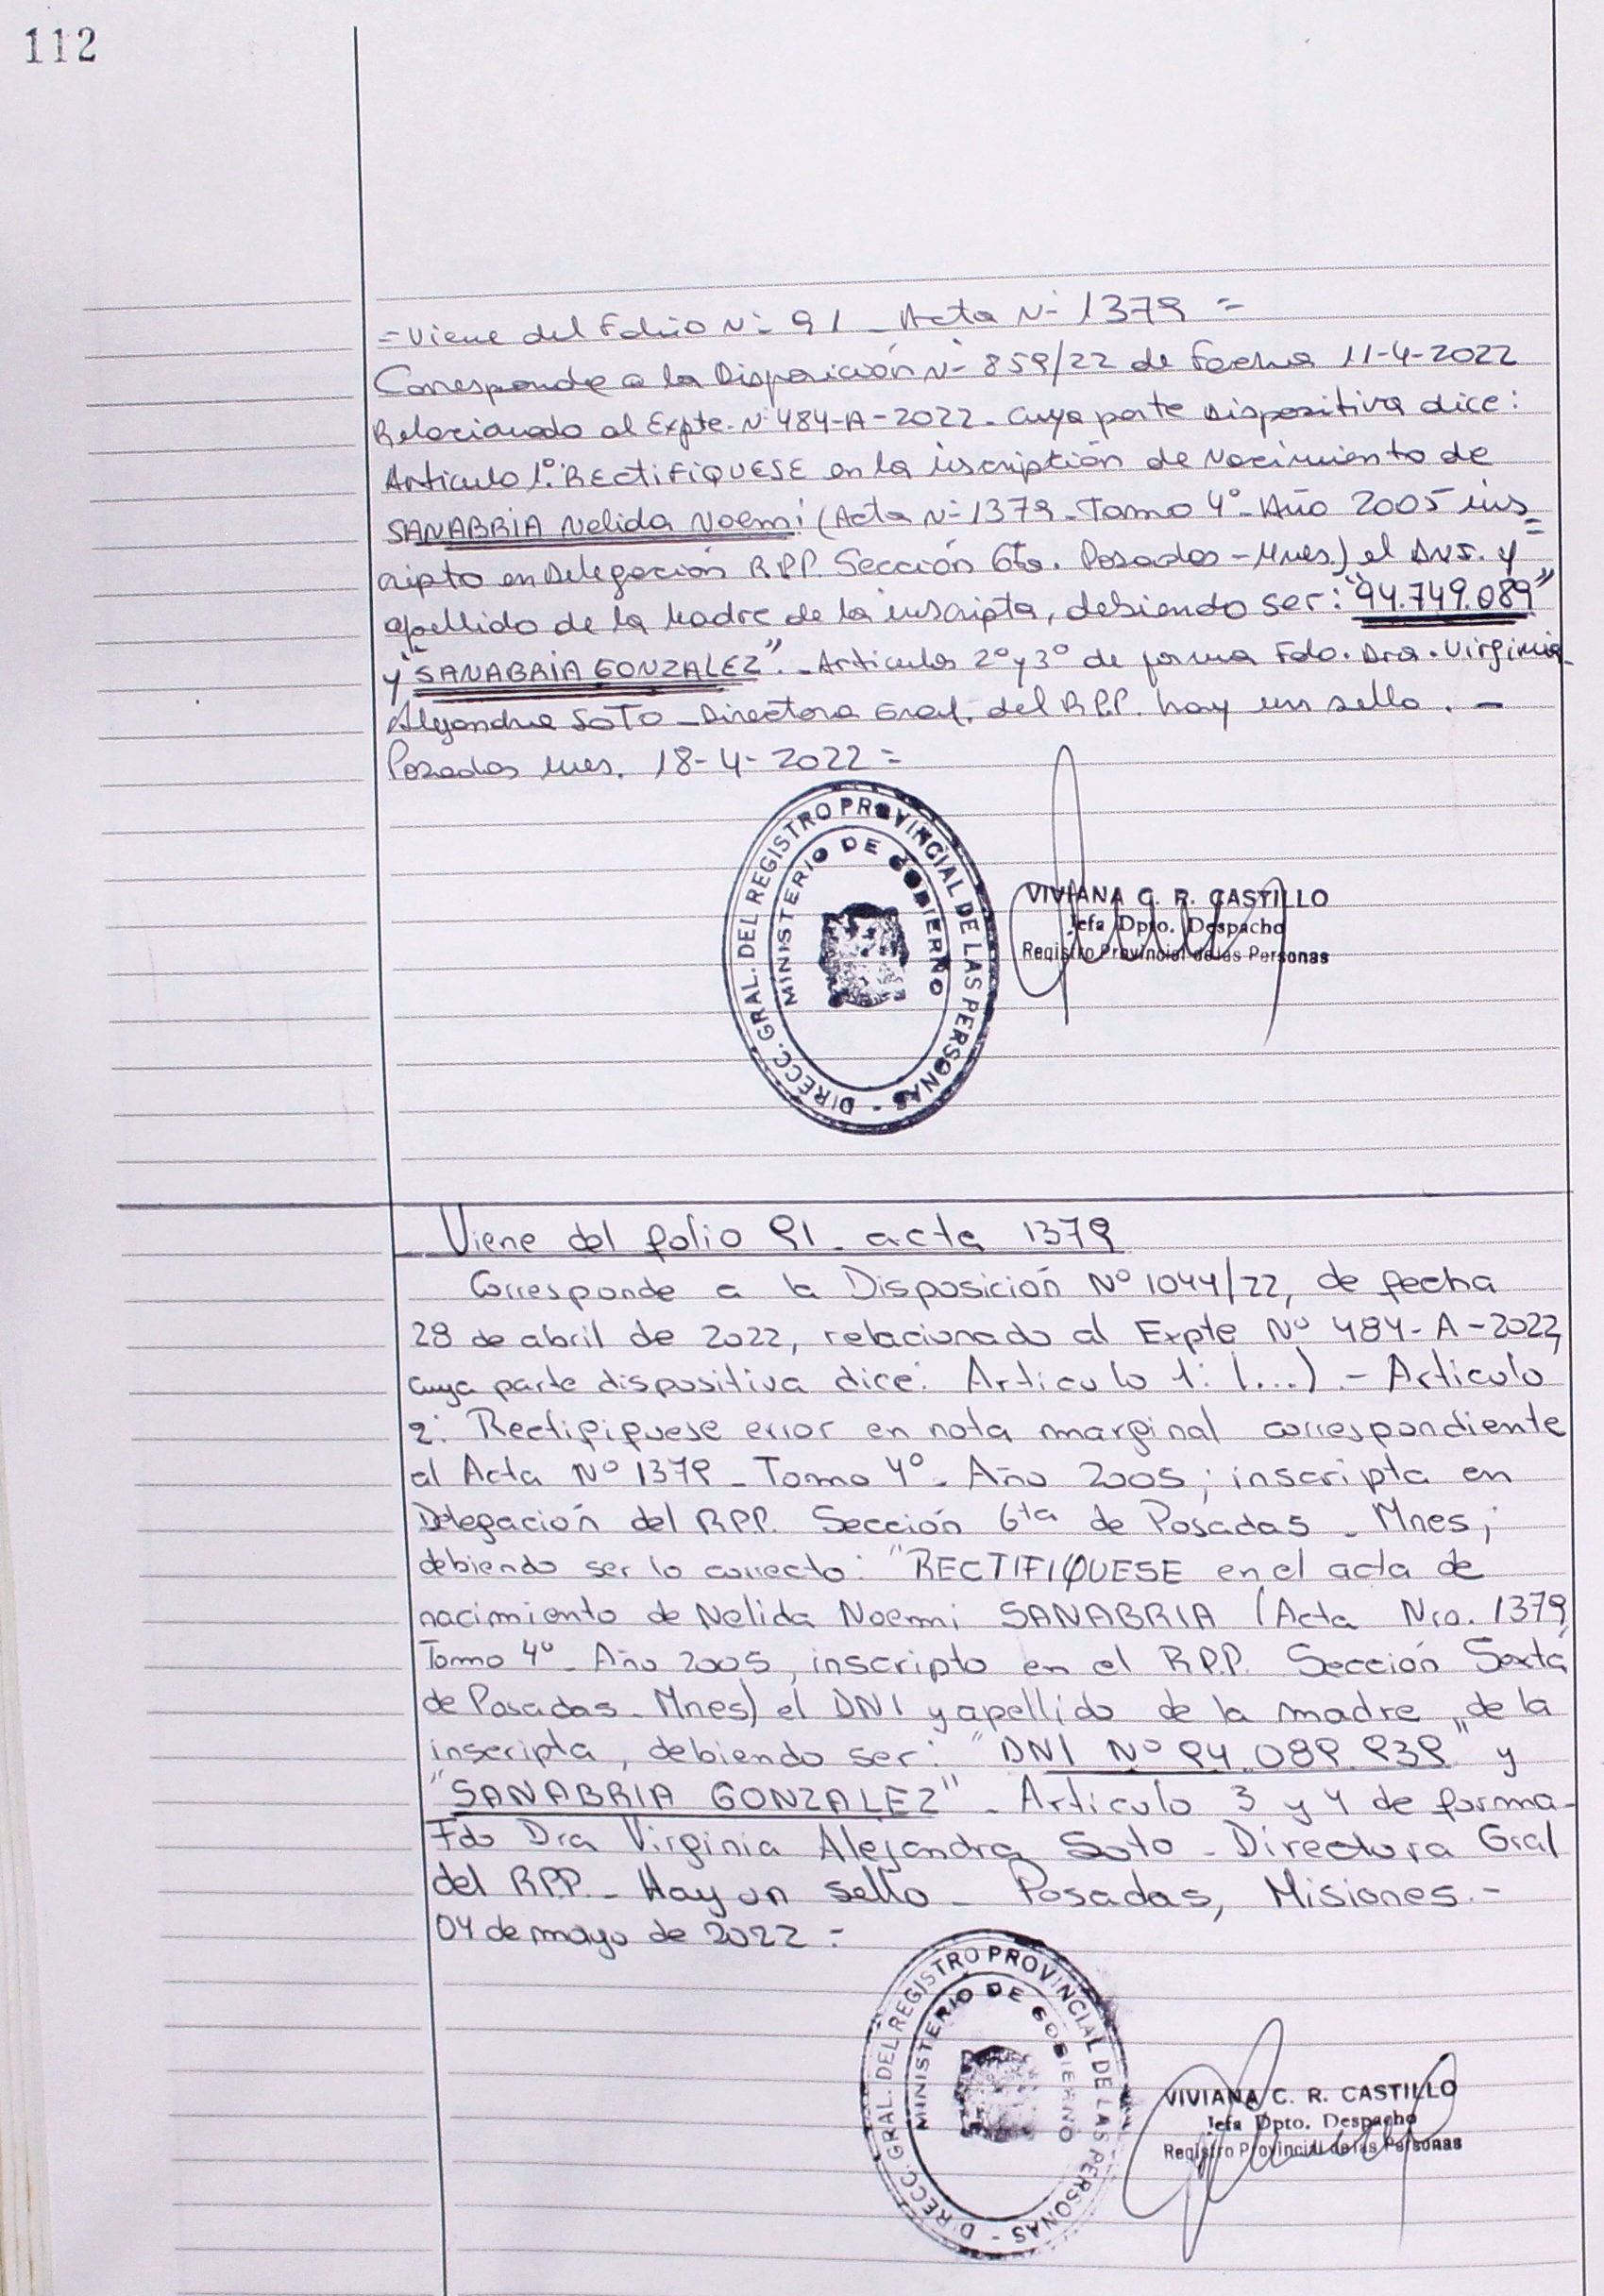 112
=Viene del Folio Nº 91 - Acta Nº 1379 =
Corresponde a la Disposición Nº 859/22 de Fecha 11-4-2022
Relacionado al Expte. Nº 484-A-2022 - cuya parte Dispositiva dice:
Articulo 1º: RECTIFIQUESE en la inscripción de Nacimiento de
SANABRIA Nelida Noemi (Acta Nº 1379 - Tomo 4º - Año 2005 ins=
cripto en Delegación R.P.P. Sección 6ta. Posadas - Mnes.) el D.N.I. y
apellido de la Madre de la inscripta, debiendo ser: "94.749.089"
y "SANABRIA GONZALEZ". - Articulos 2º y 3º de forma Fdo. Dra. Virginia
Alejandra SOTO - Directora Gral. del R.P.P. hay un sello. -
Posadas Mnes. 18-4-2022 =
DIRECC. GRAL. DEL REGISTRO PROVINCIAL DE LAS PERSONAS -
MINISTERIO DE GOBIERNO
VIVIANA C. R. CASTILLO
Jefa Dpto. Despacho
Registro Provincial de las Personas
Viene del folio 91 - acta 1379
Corresponde a la Disposición Nº 1044/22, de fecha
28 de abril de 2022, relacionado al Expte Nº 484-A-2022,
cuya parte dispositiva dice: Articulo 1: (...) .- Articulo
2: Rectifiquese error en nota marginal correspondiente
al Acta Nº 1379 - Tomo 4º - Año 2005; inscripta en
Delegación del R.P.P. Sección 6ta de Posadas - Mnes;
debiendo ser lo correcto: "RECTIFIQUESE en el acta de
nacimiento de Nelida Noemi SANABRIA (Acta Nro. 1379,
Tomo 4º - Año 2005, inscripto en el R.P.P. Sección Sexta
de Posadas - Mnes) el DNI y apellido de la madre de la
inscripta, debiendo ser: "DNI Nº 94.089.939" y
"SANABRIA GONZALEZ" - Articulo 3 y 4 de forma -
Fdo Dra Virginia Alejandra Soto - Directora Gral
del R.P.P. - Hay un sello - Posadas, Misiones.-
04 de mayo de 2022 =
DIRECC. GRAL. DEL REGISTRO PROVINCIAL DE LAS PERSONAS -
MINISTERIO DE GOBIERNO
VIVIANA C. R. CASTILLO
Jefa Dpto. Despacho
Registro Provincial de las Personas